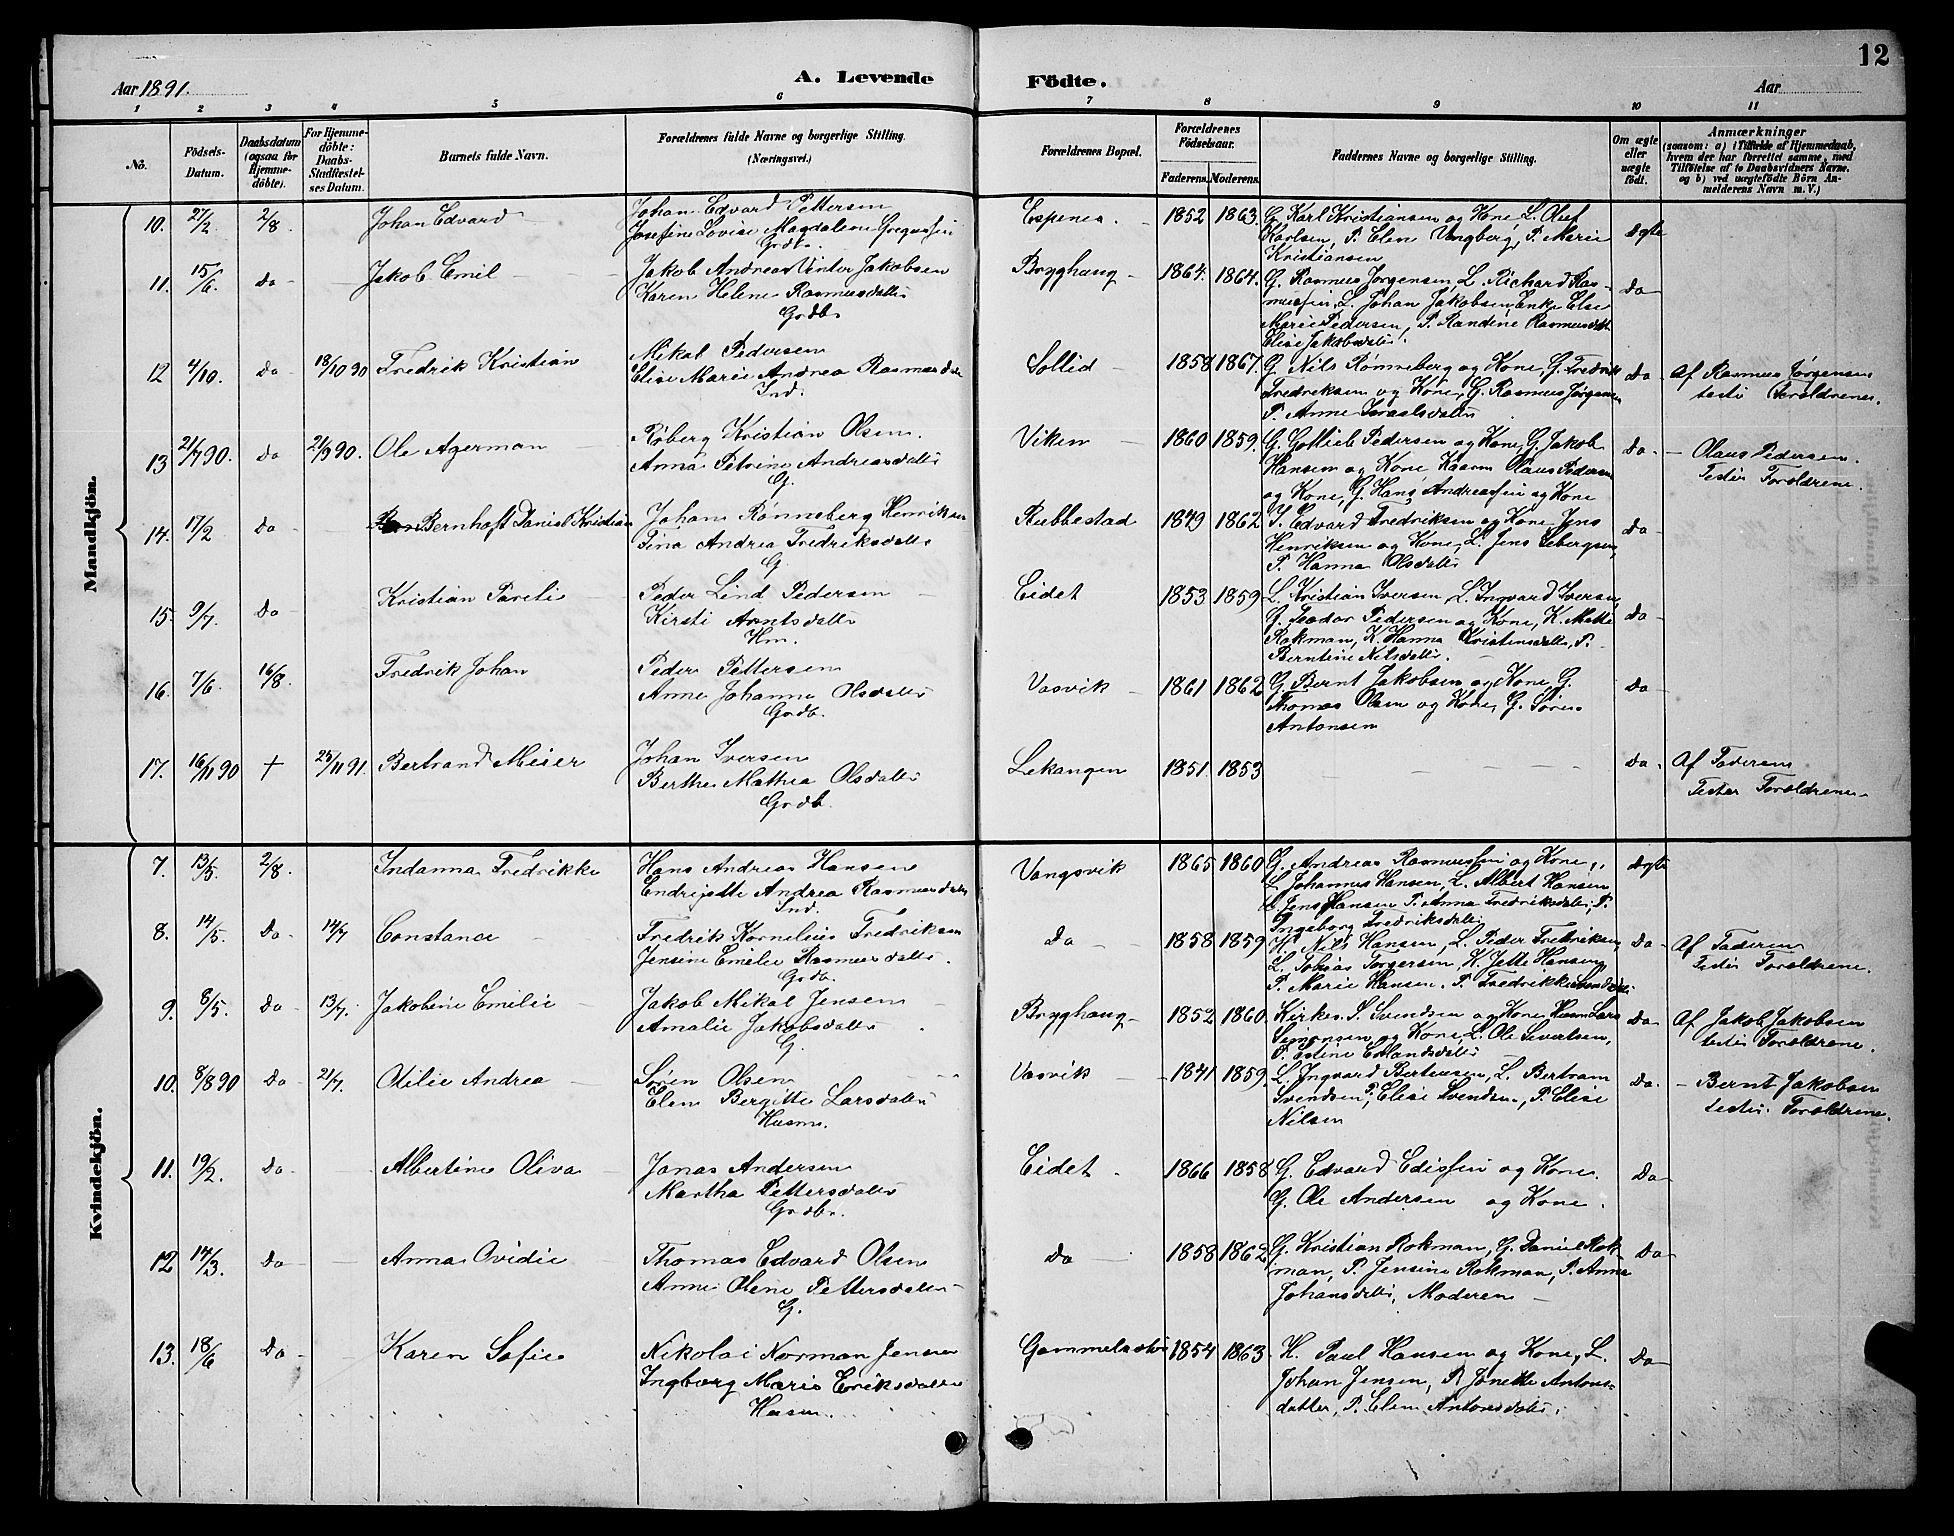 12
Aar 1891.
A. Levende
Födte.
Aar
1 2 3 4 5 6 7 8 9 10 11
No.
Födsels-Datum.
Daabsdatum (ogsaa for Hjemmedöbte).
For Hjemmedöbte: Daabs-Stadfæstelses Datum.
Barnets fulde Navn.
Forældrenes fulde Navne og borgerlige Stilling.
(Næringsvei.)
Forældrenes Bopæl.
Forældrenes Födselsaar.
Faderens. Moderens.
Faddernes Navne og borgerlige Stilling.
Om ægte eller uægte födt.
Anmærkninger
(saasom: a) i Tilfælde af Hjemmedaab, hvem der har forrettet samme, med Tilföielse af to Daabsvidners Navne, og b) ved uægtefödte Börn Anmelderens Navn m. V.)
Mandkjön.
10. 27/2 2/8 Johan Edvard
Johan Edvard Pettersen
Josefine Lovise Magdalene Gregussen
Grdb.
Espenes. 1852 1863.
G. Karl Kristiansen og Kone, L. Oluf
Karlsen, P. Elen Vangberg, P. Marie
Kristiansen
Ægte
11. 15/6. Do Jakob Emil
Jakob Andreas Winter Jakobsen
Karen Helene Rasmusdatter
Grdb.
Bryghaug 1864. 1864.
G. Rasmus Jørgensen, L. Richard Ras-
mussen, L. Johan Jakobsen, Enke Else
Marie Pedersen, P. Randine Rasmusdatt
Elise Jakobsdatter.
Do
12 4/10. Do 18/10 90 Fredrik Kristian
Mikal Pedersen
Elise Marie Andrea Rasmusdatter
Ind.
Sollid 1858 1867.
G. Nils Rønneberg og Kone, G. Fredrik
Fredriksen og Kone, G. Rasmus Jørgensen
P. Anne Israelsdatter
Do
Af Rasmus Jørgensen
testes Forældrene.
13 21/7 90. Do 21/9 90. Ole Agerman
Røberg Kristian Olsen.
Anna Petrine Andreasdatter
G.
Viken 1860 1859.
G. Gotlieb Pedersen og Kone, G. Jakob
Hansen og Kone, Husm Olaus Pedersen
og Kone, G. Hans Andreassen og Kone
Do
Olaus Pedersen.
Testes Forældrene.
14. 17/2 Do Bernhoft Daniel Kristian
Johan Rønneberg Henriksen
Tina Andrea Fredriksdatter
G.
Rubbestad 1849 1862
Edvard Fredriksen og Kone, Jens
Henriksen og Kone, L. Jens
P. Hanna Olsdatter
Do
15. 9/7. Do Kristian Pareli
Peder Lind Pedersen
Kirsti Arntsdatter
Hm.
Eidet 1853 1859
L. Kristian Iversen, L. Ingvard Iversen,
G. Teodor Pedersen og Kone, K. Mette
Rokman, K. Hanna Kristensdatter, P.
Berntine Nilsdatter.
Do
16. 7/6. 16/8. Fredrik Johan
Peder Pettersen
Anne Johanne Olsdatter
Grdb.
Vasvik 1861 1862
G. Bernt Jakobsen og Kone, G.
Thomas Olsen og Kone, G. Søren
Antonsen
Do
17. 16/11 90 + 25/11 91. Bertrand Meier
Johan Iversen
Berthe Mathea Olsdatter
Grdb.
Lekangen 1851. 1853
Do.
Af Faderen
Testes Forældrene
Kvindekjön.
7. 13/5 2/8. Indanna Fredrikke
Hans Andreas Hansen
Endrijette Andrea Rasmusdatter
Ind.
Vangsvik 1865 1860
G. Andreas Rasmussen og Kone,
L. Johannes Hansen, L. Albert Hansen
L. Jens Hansen P. Anna Fredriksdatter, P.
Ingeborg Fredriksdatter
Ægte
8. 14/5. Do 14/7 Constance
Fredrik Kornelius Fredriksen
Jensine Emelie Rasmusdatter.
Grdb.
Do 1858 1859
Nils Hansen, L. Peder Fredriksen
L. Tobias Torgersen, K. Jette Hansen,
P. Marie Hansen. P. Fredrikke
Do
Af Faderen
Testes Forældrene.
9. 8/5. Do 13/7. Jakobine Emilie
Jakob Mikal Jensen
Amalie Jakobsdatter
G.
Bryghaug 1852 1860.
Kirkes. S. Svendsen og Kone, Husm Lars
Simonsen og Kone, L. Ole Sivertsen,
P. Estine Erlandsdatter
Do
Af Jakob Jakobsen
testes Forældrene.
10. 8/8 90 Do 21/7. Otilie Andrea
Søren Olsen
Elen Bergitte Larsdatter
Husm.
Vasvik 1841 1859
L. Ingvard Berteusen, L. Bertram
Svendsen, P. Elise Svendsen, P. Elise
Nilsen
Do.
Bernt Jakobsen
testes. Forældrene.
11. 19/2. Do Albertine Oliva
Jonas Andersen
Martha Pettersdatter
Grdbr.
Eidet 1866 1858
G. Edvard Edissen og Kone.
G. Ole Andersen og Kone.
Do
12 14/3. Do Anna Ovidie
Thomas Edvard Olsen
Anne Olene Pettersdatter
G.
Do 1858 1862
G. Kristian Rokman, G. Daniel Rok-
man, P. Jensine Rokman, P. Anna
Johansdatter, Moderen
Do
13. 18/6 Do Karen Sofie
Nikolai Norman Jensen
Ingborg Marie Eriksdatter
Husm.
1854 1863
H. Paul Hansen og Kone, L.
Johan Jensen, P. Jonette Antons-
datter, P. Elen Antonsdatter.
Do